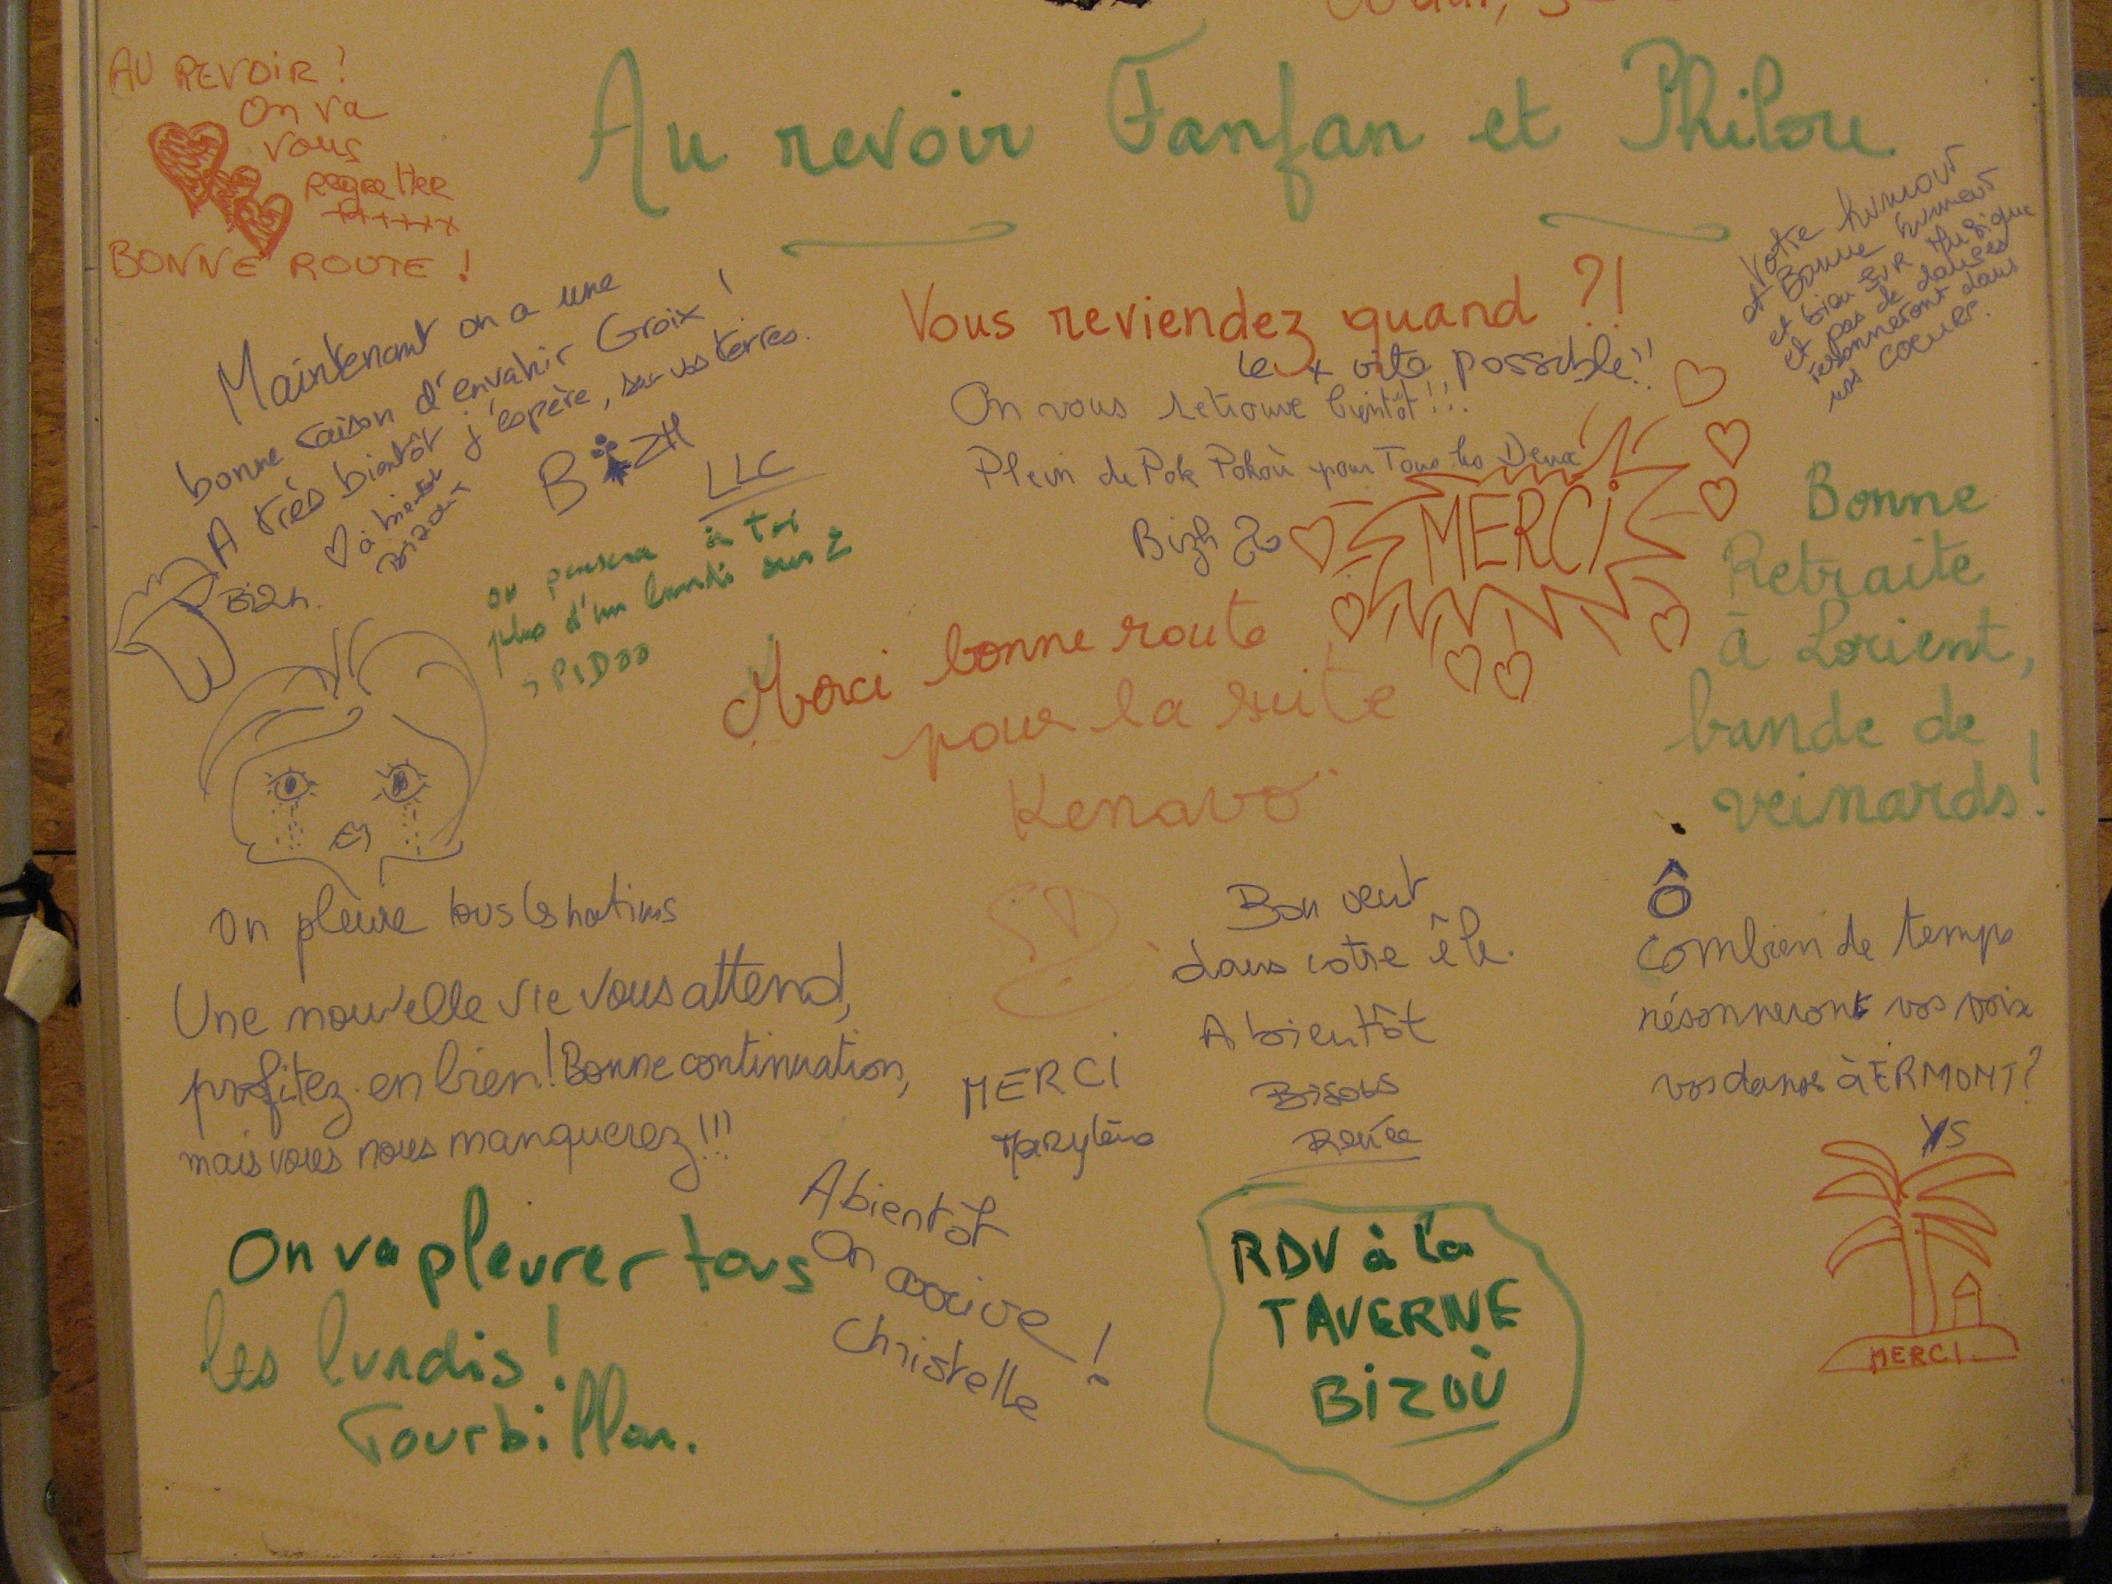 AU REVOIR !
On va
vous
regretter
++++++
BONNE ROUTE !
Au revoir Fanfan et Philou
Votre humour
et Bonne humeur
et bien sûr Musique
et pas de danses
résonneront dans
nos coeurs.
Vous reviendez quand ?!
le + vite possible !!
On vous retrouve bientôt !!!
Plein de Pok Pokoù pour Tous les Deux
Bizh
MERCI
Maintenant on a une
bonne raison d'envahir Groix !
A très bientôt j'espère, sur vos terres.
BIZH
LLC
à bientôt
Bizh.
on pensera à toi
plus d'un lundi sur 2
Merci bonne route
pour la suite
Kenavo
Bonne
Retraite
à Lorient,
bande de
veinards !
On pleure tous les matins
Une nouvelle vie vous attend,
profitez-en bien ! Bonne continuation,
mais vous nous manquerez !!!
MERCI
Marylène
Bon vent
dans votre île.
A bientôt
Bisous
Renée
Ô
combien de temps
résonneront vos voix
vos danses à ERMONT ?
YS
MERCI
On va pleurer tous
les lundis !
Tourbillon.
A bientôt
On arrive !
Christelle
RDV à la
TAVERNE
BIZOÙ